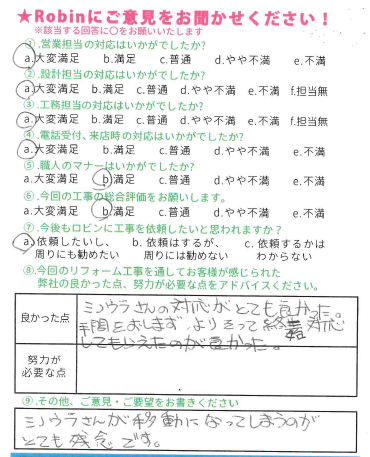 ★Robinにご意見をお聞かせください！
※該当する回答に〇をお願いいたします
①.営業担当の対応はいかがでしたか?
a.大変満足 b.満足 c.普通 d.やや不満 e.不満
②.設計担当の対応はいかがでしたか?
a.大変満足 b.満足 c.普通 d.やや不満 e.不満 f.担当無
③.工務担当の対応はいかがでしたか?
a.大変満足 b.満足 c.普通 d.やや不満 e.不満 f.担当無
④.電話受付、来店時の対応はいかがでしたか?
a.大変満足 b.満足 c.普通 d.やや不満 e.不満
⑤.職人のマナーはいかがでしたか?
a.大変満足 b.満足 c.普通 d.やや不満 e.不満
⑥.今回の工事の総合評価をお願いします。
a.大変満足 b.満足 c.普通 d.やや不満 e.不満
⑦.今後もロビンに工事を依頼したいと思われますか?
a.依頼したいし、 b.依頼はするが、 c.依頼するかは
周りにも勧めたい 周りには勧めない わからない
⑧.今回のリフォーム工事を通してお客様が感じられた
弊社の良かった点、努力が必要な点をアドバイスください。
良かった点
ミノウラさんの対応がとても良かった。
手間をおしまず、よりそって 対応
してもらえたのが良かった。
努力が
必要な点
⑨.その他、ご意見・ご要望をお書きください
ミノウラさんが移動になってしまうのが
とても残念です。